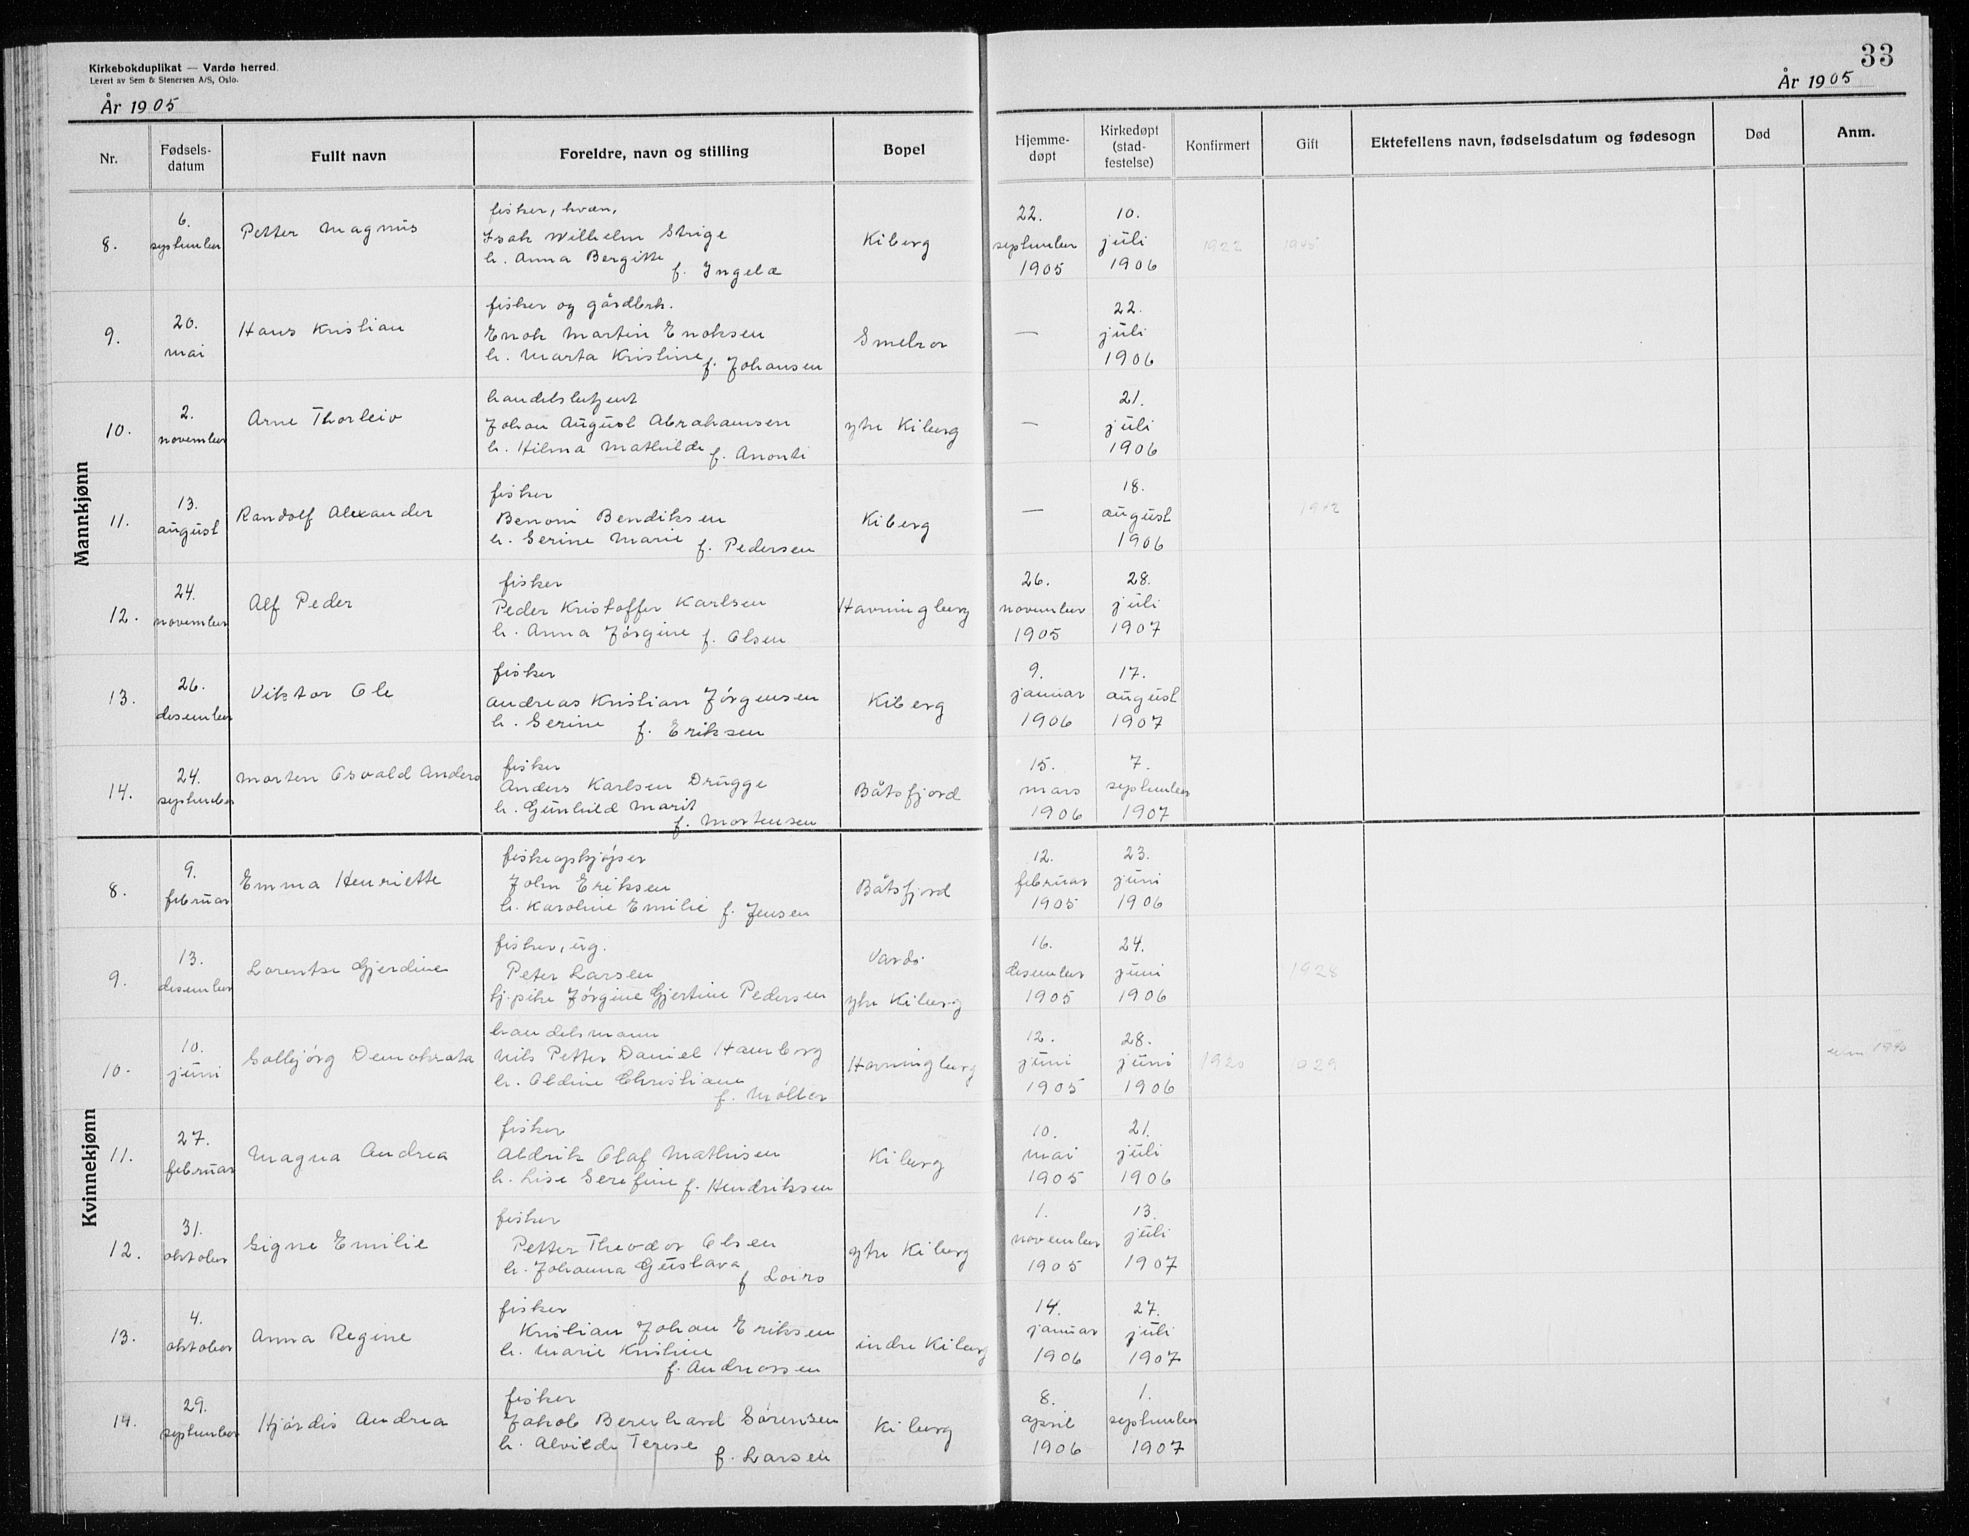 33
Kirkebokduplikat — Vardø herred.
Levert av Sem & Stenersen A/S, Oslo.
År 1905
År 1905
Nr. Fødselsdatum Fullt navn Foreldre, navn og stilling Bopel Hjemmedøpt Kirkedøpt (stadfestelse) Konfirmert Gift Ektefellens navn, fødselsdatum og fødesogn Død Anm.
Mannkjønn
6. fisker, kvæn, 22. 10.
8. september Petter Magnus Isak Wilhelm Strige Kiberg september juli 1922 1945
h. Anna Bergitte 1905 1906
f. Ingelæ
fisker og gårdbrk. 22.
9. 20. Hans Kristian Enok Martin Enoksen Smelror — juli
mai h. Marta Kristine f. Johansen 1906
2. handelsbetjent 21.
10. november Arne Thorleiv Johan August Abrahamsen ytre Kiberg — juli
h. Hilma Mathilde f. Anonti 1906
13. fisker 18.
11. august Randolf Alexander Benoni Bendiksen Kiberg — august 1942
h. Serine Marie f. Pedersen 1906
24. fisker 26. 28.
12. november Alf Peder Peder Kristoffer Karlsen Havningberg november juli
h. Anna Jørgine f. Olsen 1905 1907
26. fisker 9. 17.
13. desember Viktor Ole Andreas Kristian Jørgensen Kiberg januar august
h. Serine f. Eriksen 1906 1907
24. fisker 15. 7.
14. september Morten Osvald Anders Anders Karlsen Drugge Båtsfjord mars september
h. Gunhild Marit 1906 1907
f. Mortensen
Kvinnekjønn
9. fiskeopkjøper 12. 23.
8. februar Emma Henriette John Eriksen Båtsfjord februar juni
h. Karoline Emilie f. Jensen 1905 1906
13. fisker, ug. Vardø 16. 24.
9. desember Lorentse Gjerdine Peter Larsen desember juni 1928
tj.pike Jørgine Gjertine Pedersen ytre Kiberg 1905 1906
10. handelsmann 12. 28.
10. juni Solbjørg Demokrata Nils Petter Daniel Hamborg Havningberg juni juni 1920 1940
h. Oldine Christiane 1905 1906
f. Møller
27. fisker 10. 21.
11. februar Magna Andrea Aldrik Olaf Mathisen Kiberg mai juli
h. Lise Serefine f. Hendriksen 1905 1906
31. fisker 1. 13.
12. oktober Signe Emilie Petter Theodor Olsen ytre Kiberg november juli
h. Johanna Gustava 1905 1907
f. Loiro
4. fisker 14. 27.
13. oktober Anna Regine Kristian Johan Eriksen indre Kiberg januar juli
h. Marie Kristine 1906 1907
f. Andreassen
29. fisker 8. 1.
14. september Hjørdis Andrea Jakob Bernhard Sørensen Kiberg april september
h. Alvilde Terese 1906 1907
f. Larsen